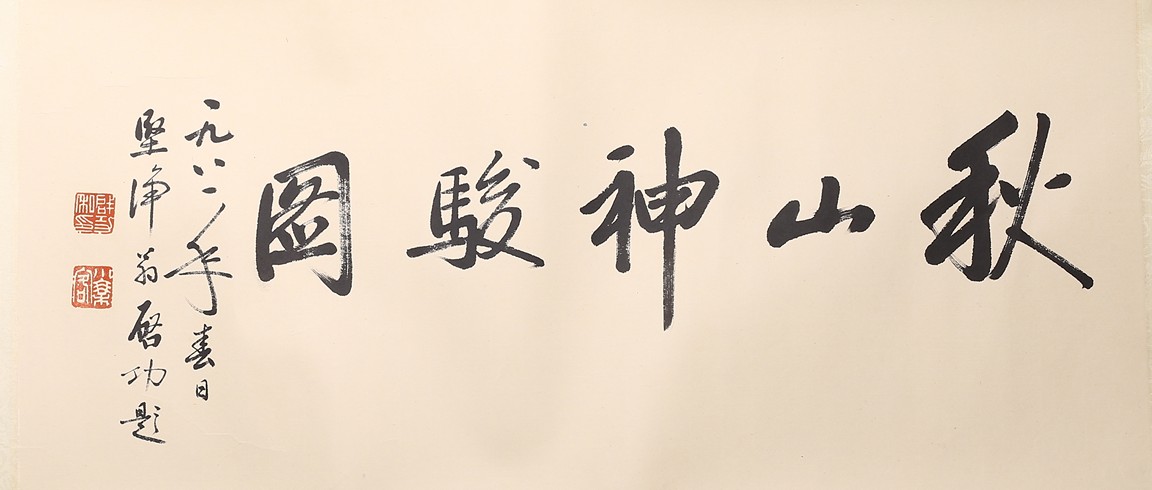 秋山神駿圖
一九八一年春日
堅淨翁啟功題